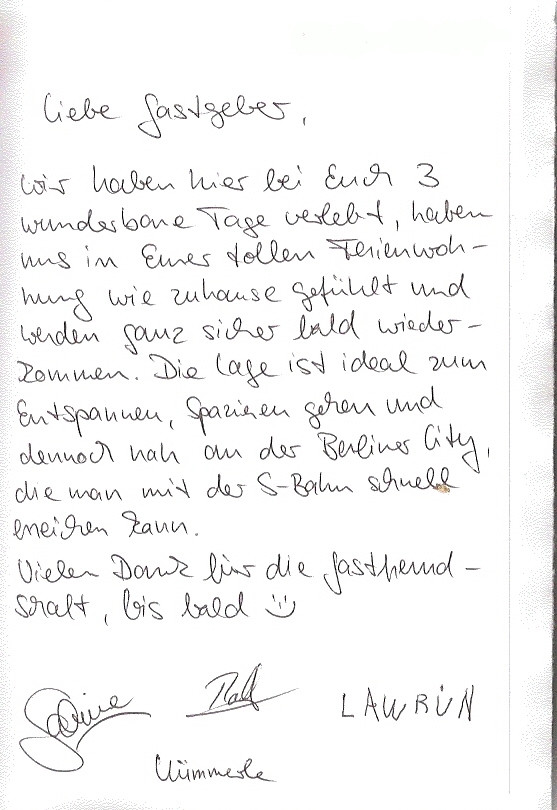 Liebe Gastgeber,
Wir haben hier bei Euch 3
wunderbare Tage verlebt, haben
uns in Eurer tollen Ferienwoh-
nung wie zuhause gefühlt und
werden ganz sicher bald wieder-
kommen. Die Lage ist ideal zum
Entspannen, Spazieren gehen und
dennoch nah an der Berliner City,
die man mit der S-Bahn schnell
erreichen kann.
Vielen Dank für die Gastfreund-
schaft, bis bald ☺
Sabine Ralf LAWRÜN
Kümmerle